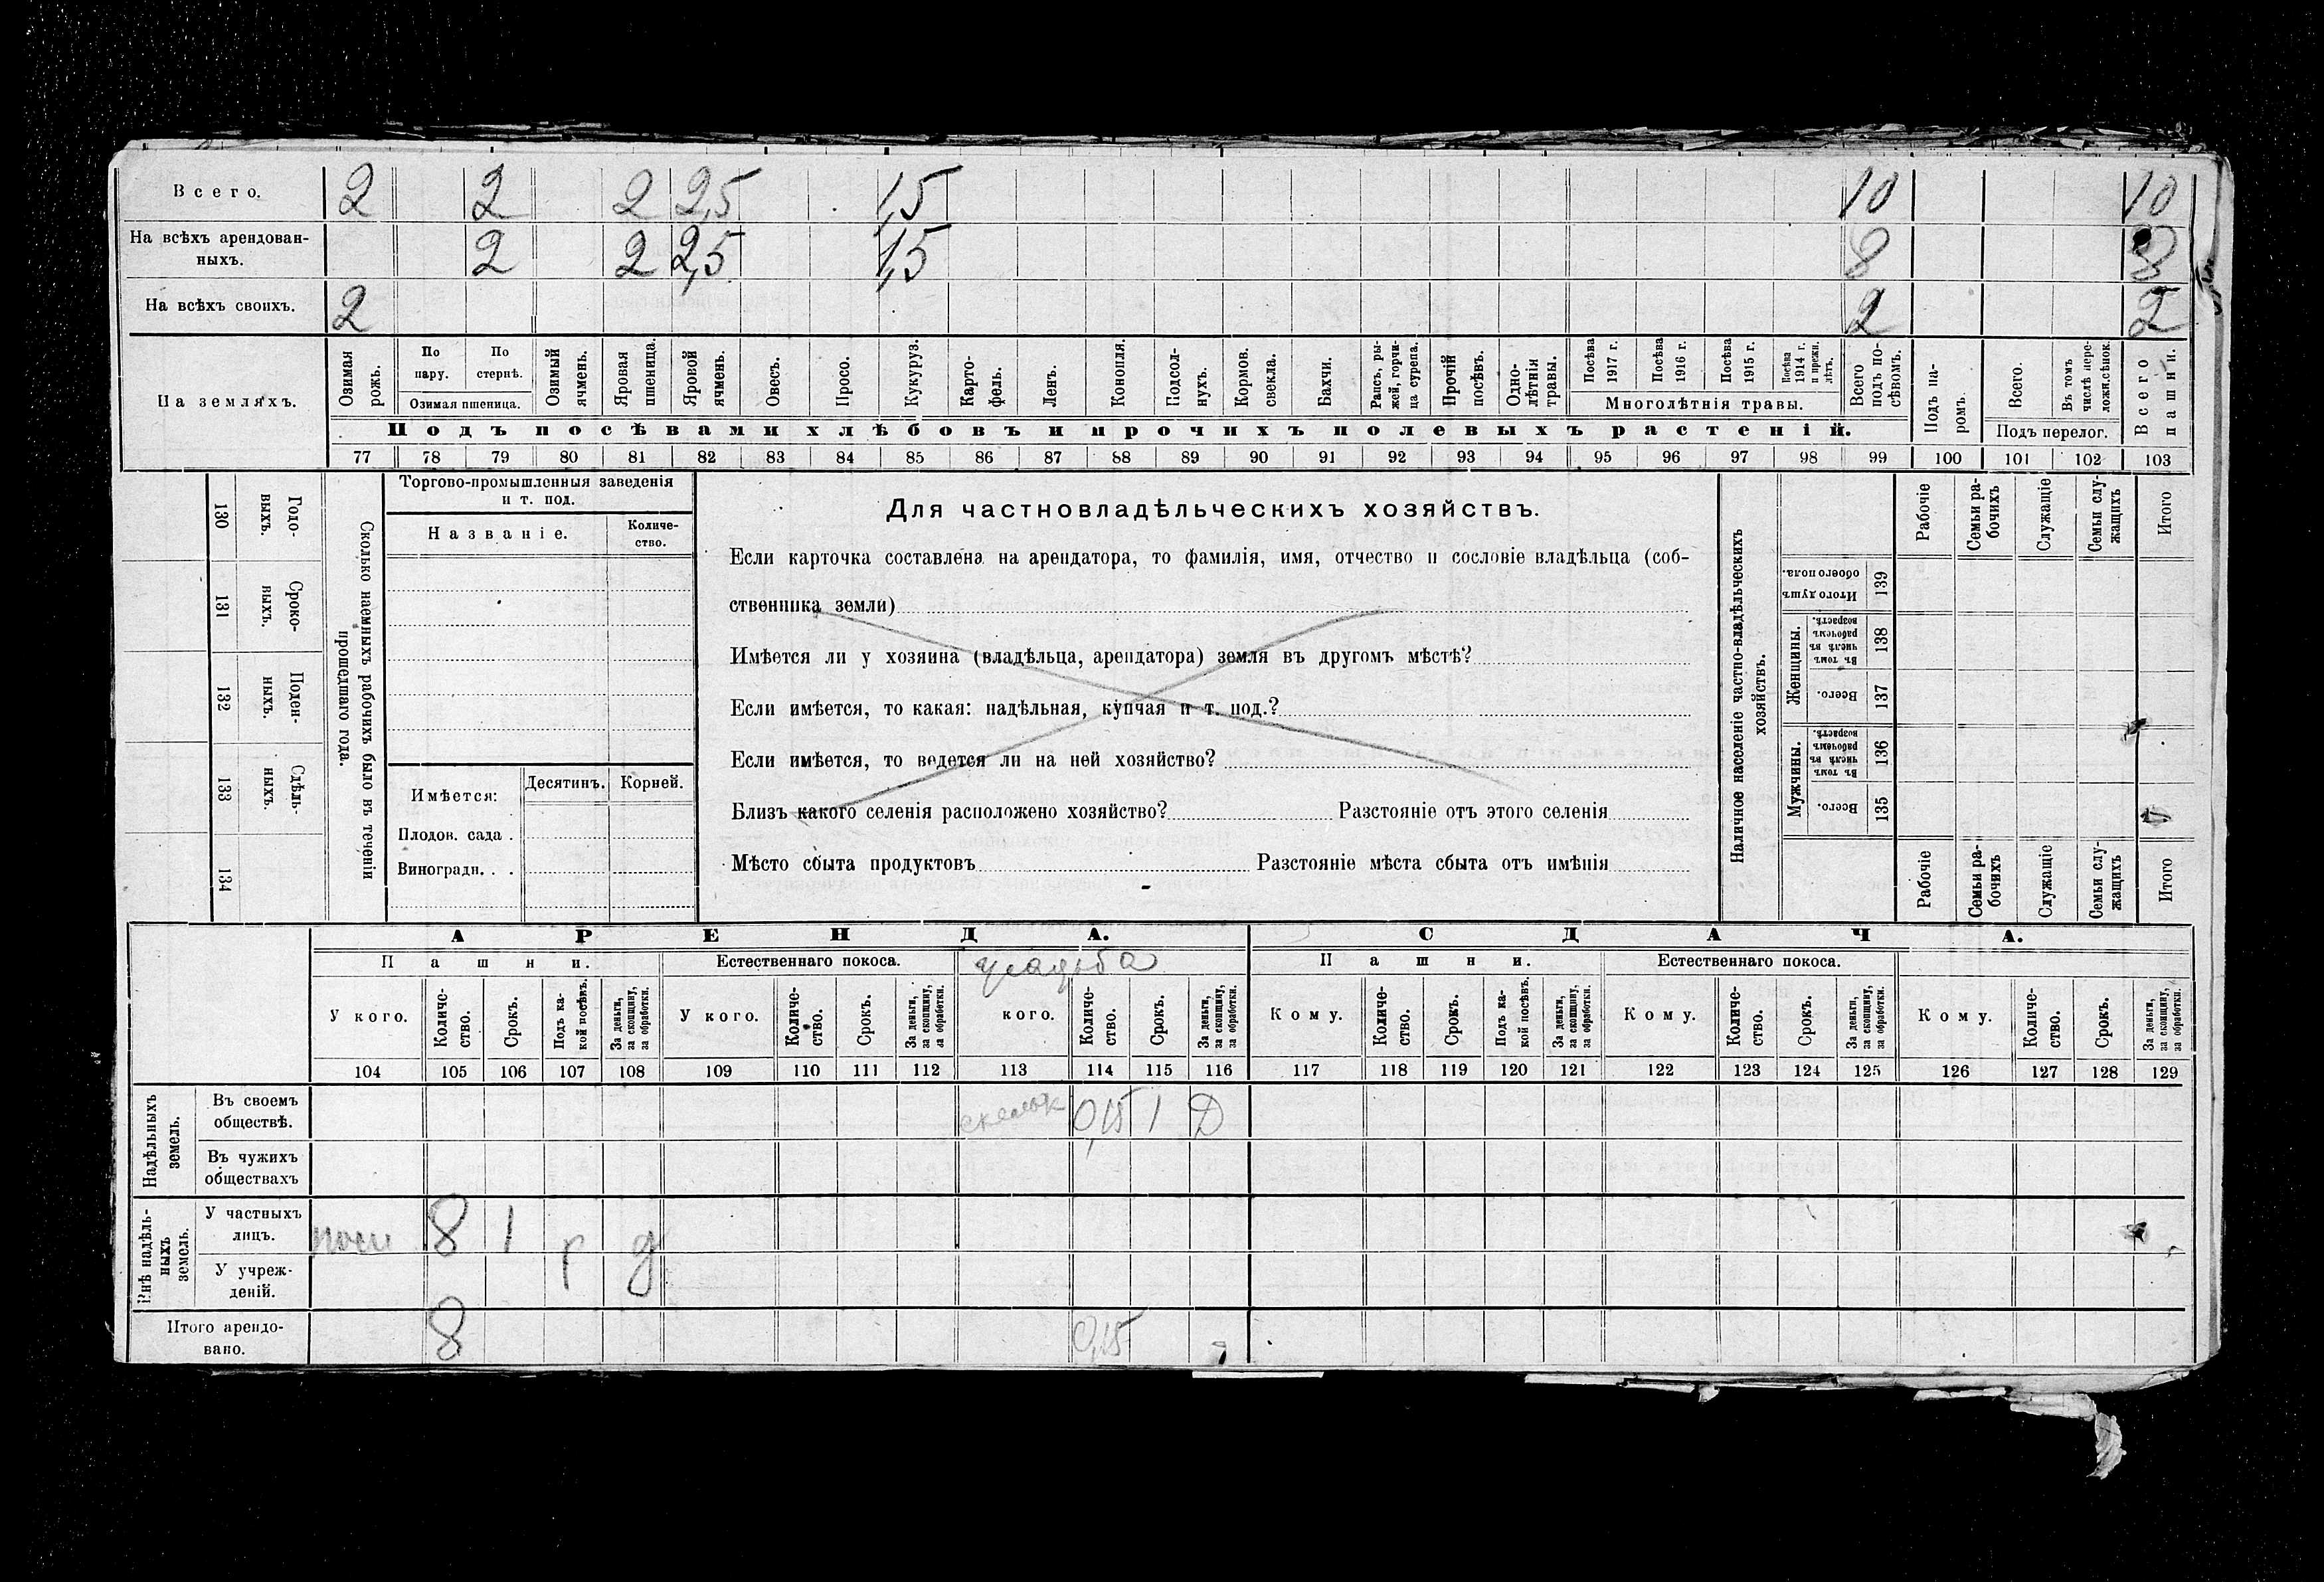 Всего. 2 2 2 2,5 1,5 10 10
На всѣхъ арендован-
ныхъ. 2 2 2,5 1,5 8 8
На всѣхъ своихъ. 2 2 2
На земляхъ.
Озимая рожь.
По пару.
По стернѣ.
Озимая пшеница.
Озимый ячмень.
Яровая пшеница.
Яровой ячмень.
Овесъ.
Просо.
Кукуруз.
Карто-
фель.
Ленъ.
Конопля.
Подсол-
нухъ.
Кормов.
свекла.
Бахчи.
Рапсъ, ры-
жей, горчи-
ца сурепа.
Прочій
посѣвъ.
Одно-
лѣтнія
травы.
Посѣва
1917 г.
Посѣва
1916 г.
Посѣва
1915 г.
Посѣва
1914 г.
и прежн.
лѣтъ.
Многолѣтнія травы.
Всего
подъ по-
сѣвомъ.
Подъ па-
ромъ.
Всего.
Въ томъ
числѣ пере-
ложн.сѣнок.
Подъ перелог.
Всего
пашни.
Подъ посѣвами хлѣбовъ и прочихъ полевыхъ растеній.
77 78 79 80 81 82 83 84 85 86 87 88 89 90 91 92 93 94 95 96 97 98 99 100 101 102 103
Сколько наемныхъ рабочихъ было въ теченіи
прошедшаго года.
Годо-
выхъ.
130
Сроко-
выхъ.
131
Поден-
ныхъ.
132
Сдѣль-
ныхъ.
133
134
Торгово-промышленныя заведенія
и т. под.
Названіе.
Количе-
ство.
Имѣется:
Десятинъ. Корней.
Плодов. сада .
Виноградн. . .
Для частновладѣльческихъ хозяйствъ.
Если карточка составлена на арендатора, то фамилія, имя, отчество и сословіе владѣльца (соб-
ственника земли)
Имѣется ли у хозяина (владѣльца, арендатора) земля въ другомъ мѣстѣ?
Если имѣется, то какая: надѣльная, купчая и т. под.?
Если имѣется, то ведется ли на ней хозяйство?
Близъ какого селенія расположено хозяйство? Разстояніе отъ этого селенія
Мѣсто сбыта продуктовъ Разстояніе мѣста сбыта отъ имѣнія
Наличное населеніе частно-владѣльческихъ
хозяйствъ.
Рабочіе
Семьи ра-
бочихъ
Служащіе
Семьи слу-
жащихъ
Итого
Итого душъ
обоего пола.
139
Женщины.
Въ томъ
числѣ въ
рабочемъ
возрастѣ.
138
Всего.
137
Мужчины.
Въ томъ
числѣ въ
рабочемъ
возрастѣ.
136
Всего.
135
Рабочіе
Семьи ра-
бочихъ
Служащіе
Семьи слу-
жащихъ
Итого
АРЕНДА. СДАЧА.
Пашни. Естественнаго покоса. усадьба Пашни. Естественнаго покоса.
У кого.
Количе-
ство.
Срокъ.
Подъ ка-
кой посѣвъ.
За деньги,
за скопщину,
за обработки.
У кого.
Количе-
ство.
Срокъ.
За деньги,
за скопщину,
за обработки.
кого.
Количе-
ство.
Срокъ.
За деньги,
за скопщину,
за обработки.
Кому.
Количе-
ство.
Срокъ.
Подъ ка-
кой посѣвъ.
За деньги,
за скопщину,
за обработки.
Кому.
Количе-
ство.
Срокъ.
За деньги,
за скопщину,
за обработки.
Кому.
Количе-
ство.
Срокъ.
За деньги,
за скопщину,
за обработки.
104 105 106 107 108 109 110 111 112 113 114 115 116 117 118 119 120 121 122 123 124 125 126 127 128 129
Надѣльныхъ
земель.
Въ своемъ
обществѣ. 0,15 1 Д
Въ чужихъ
обществахъ
Внѣ надѣль-
ныхъ
земель.
У частныхъ
лицъ. 8 1 р д
У учреж-
деній.
Итого арендо-
вано. 8 0,15